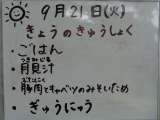 9月21日(火)
きょうのきゅうしょく
・ごはん
・月見汁
つきみじる
・豚肉とキャベツのみそいため
ぶたにく
・ぎゅうにゅう